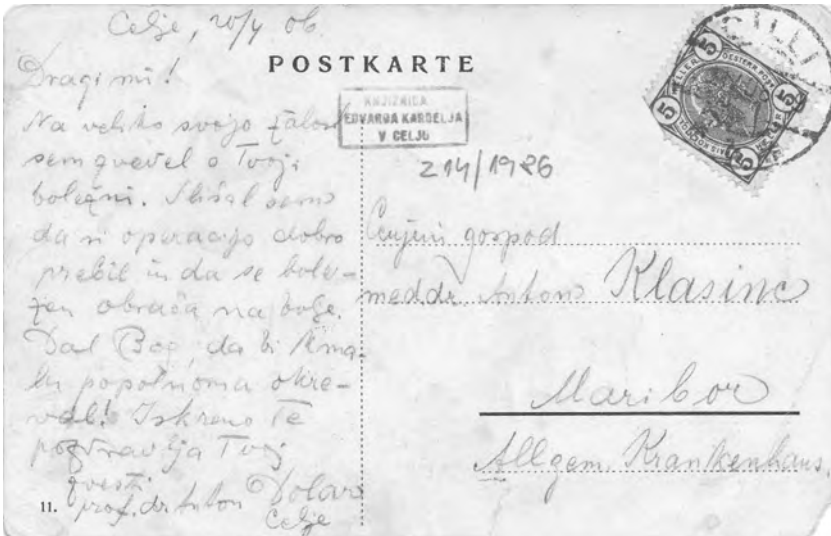 Celje, 20/4 06
Dragi mi!
Na veliko svojo žalost
sem zvedel o Tvoji
bolezni. Slišal sem
da si operacijo dobro
prebil in da se bole-
zen obrača na bolje.
Dal Bog, da bi kma-
lu popolnoma okre-
val! Iskreno Te
pozdravlja Tvoj
zvesti
prof. dr. Anton Dolar
Celje
11.
POSTKARTE
KNJIŽNICA
EDVARDA KARDELJA
V CELJU
Z 14/1986
CILLI
5 HELLER 5
Cenjeni gospod
med. dr. Anton Klasinc
Maribor
Allgem. Krankenhaus